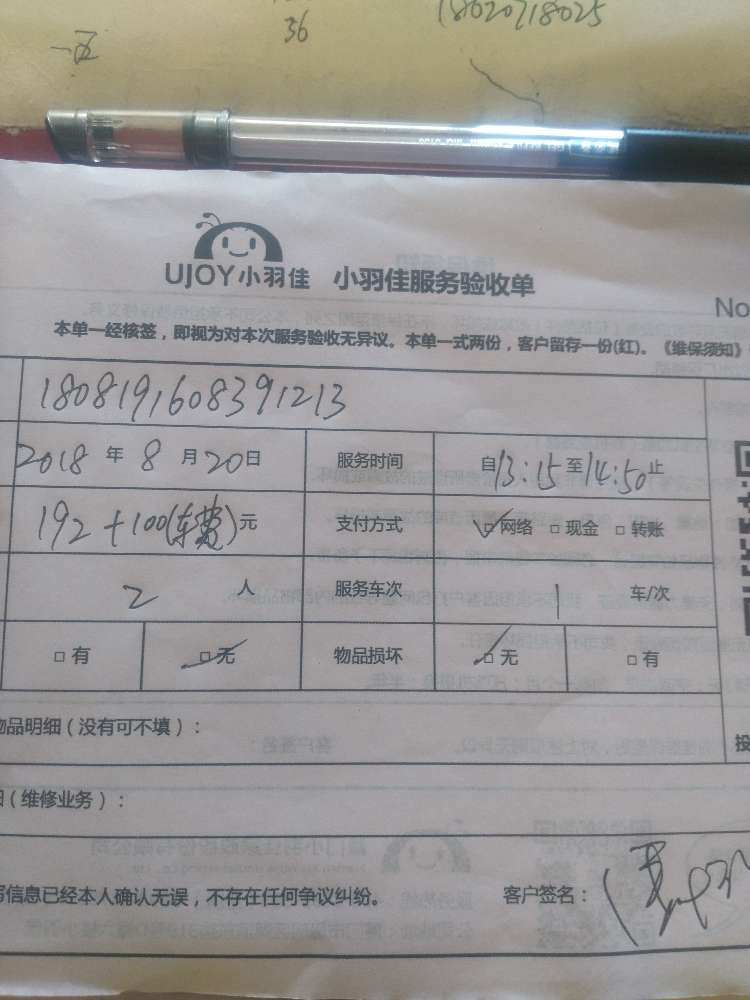 36
18020718025
UJOY小羽佳 小羽佳服务验收单
No
本单一经核签，即视为对本次服务验收无异议。本单一式两份，客户留存一份(红)。《维保须知》
1808191608391213
2018 年 8 月 20 日 服务时间 自 13:15 至 14:50 止
192+100(车费)元 支付方式 □网络 □现金 □转账
2 人 服务车次 1 车/次
□有 □无 物品损坏 □无 □有
物品明细（没有可不填）：
（维修业务）：
信息已经本人确认无误，不存在任何争议纠纷。 客户签名：